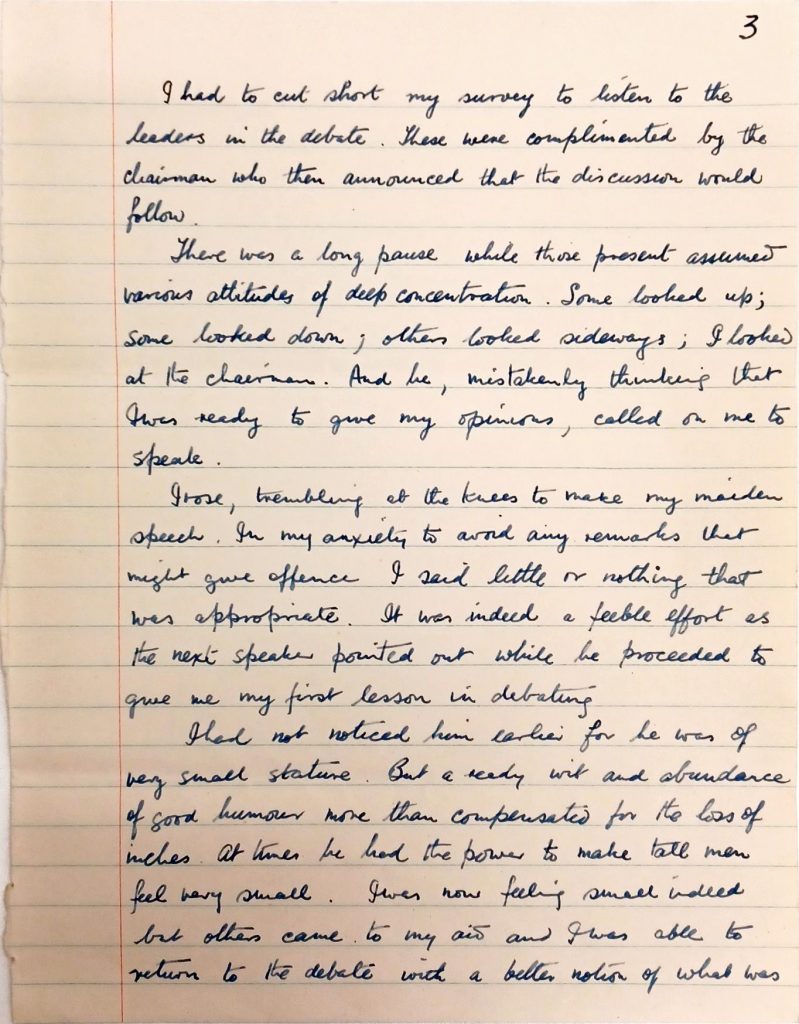 3
I had to cut short my survey to listen to the
leaders in the debate. These were complimented by the
chairman who then announced that the discussion would
follow.
There was a long pause while those present assumed
various attitudes of deep concentration. Some looked up;
some looked down; others looked sideways; I looked
at the chairman. And he, mistakenly thinking that
I was ready to give my opinions, called on me to
speak.
I rose, trembling at the knees to make my maiden
speech. In my anxiety to avoid any remarks that
might give offence I said little or nothing that
was appropriate. It was indeed a feeble effort as
the next speaker pointed out while he proceeded to
give me my first lesson in debating
I had not noticed him earlier for he was of
very small stature. But a ready wit and abundance
of good humour more than compensated for the loss of
inches. At times he had the power to make tall men
feel very small. I was now feeling small indeed
but others came to my aid and I was able to
return to the debate with a better notion of what was